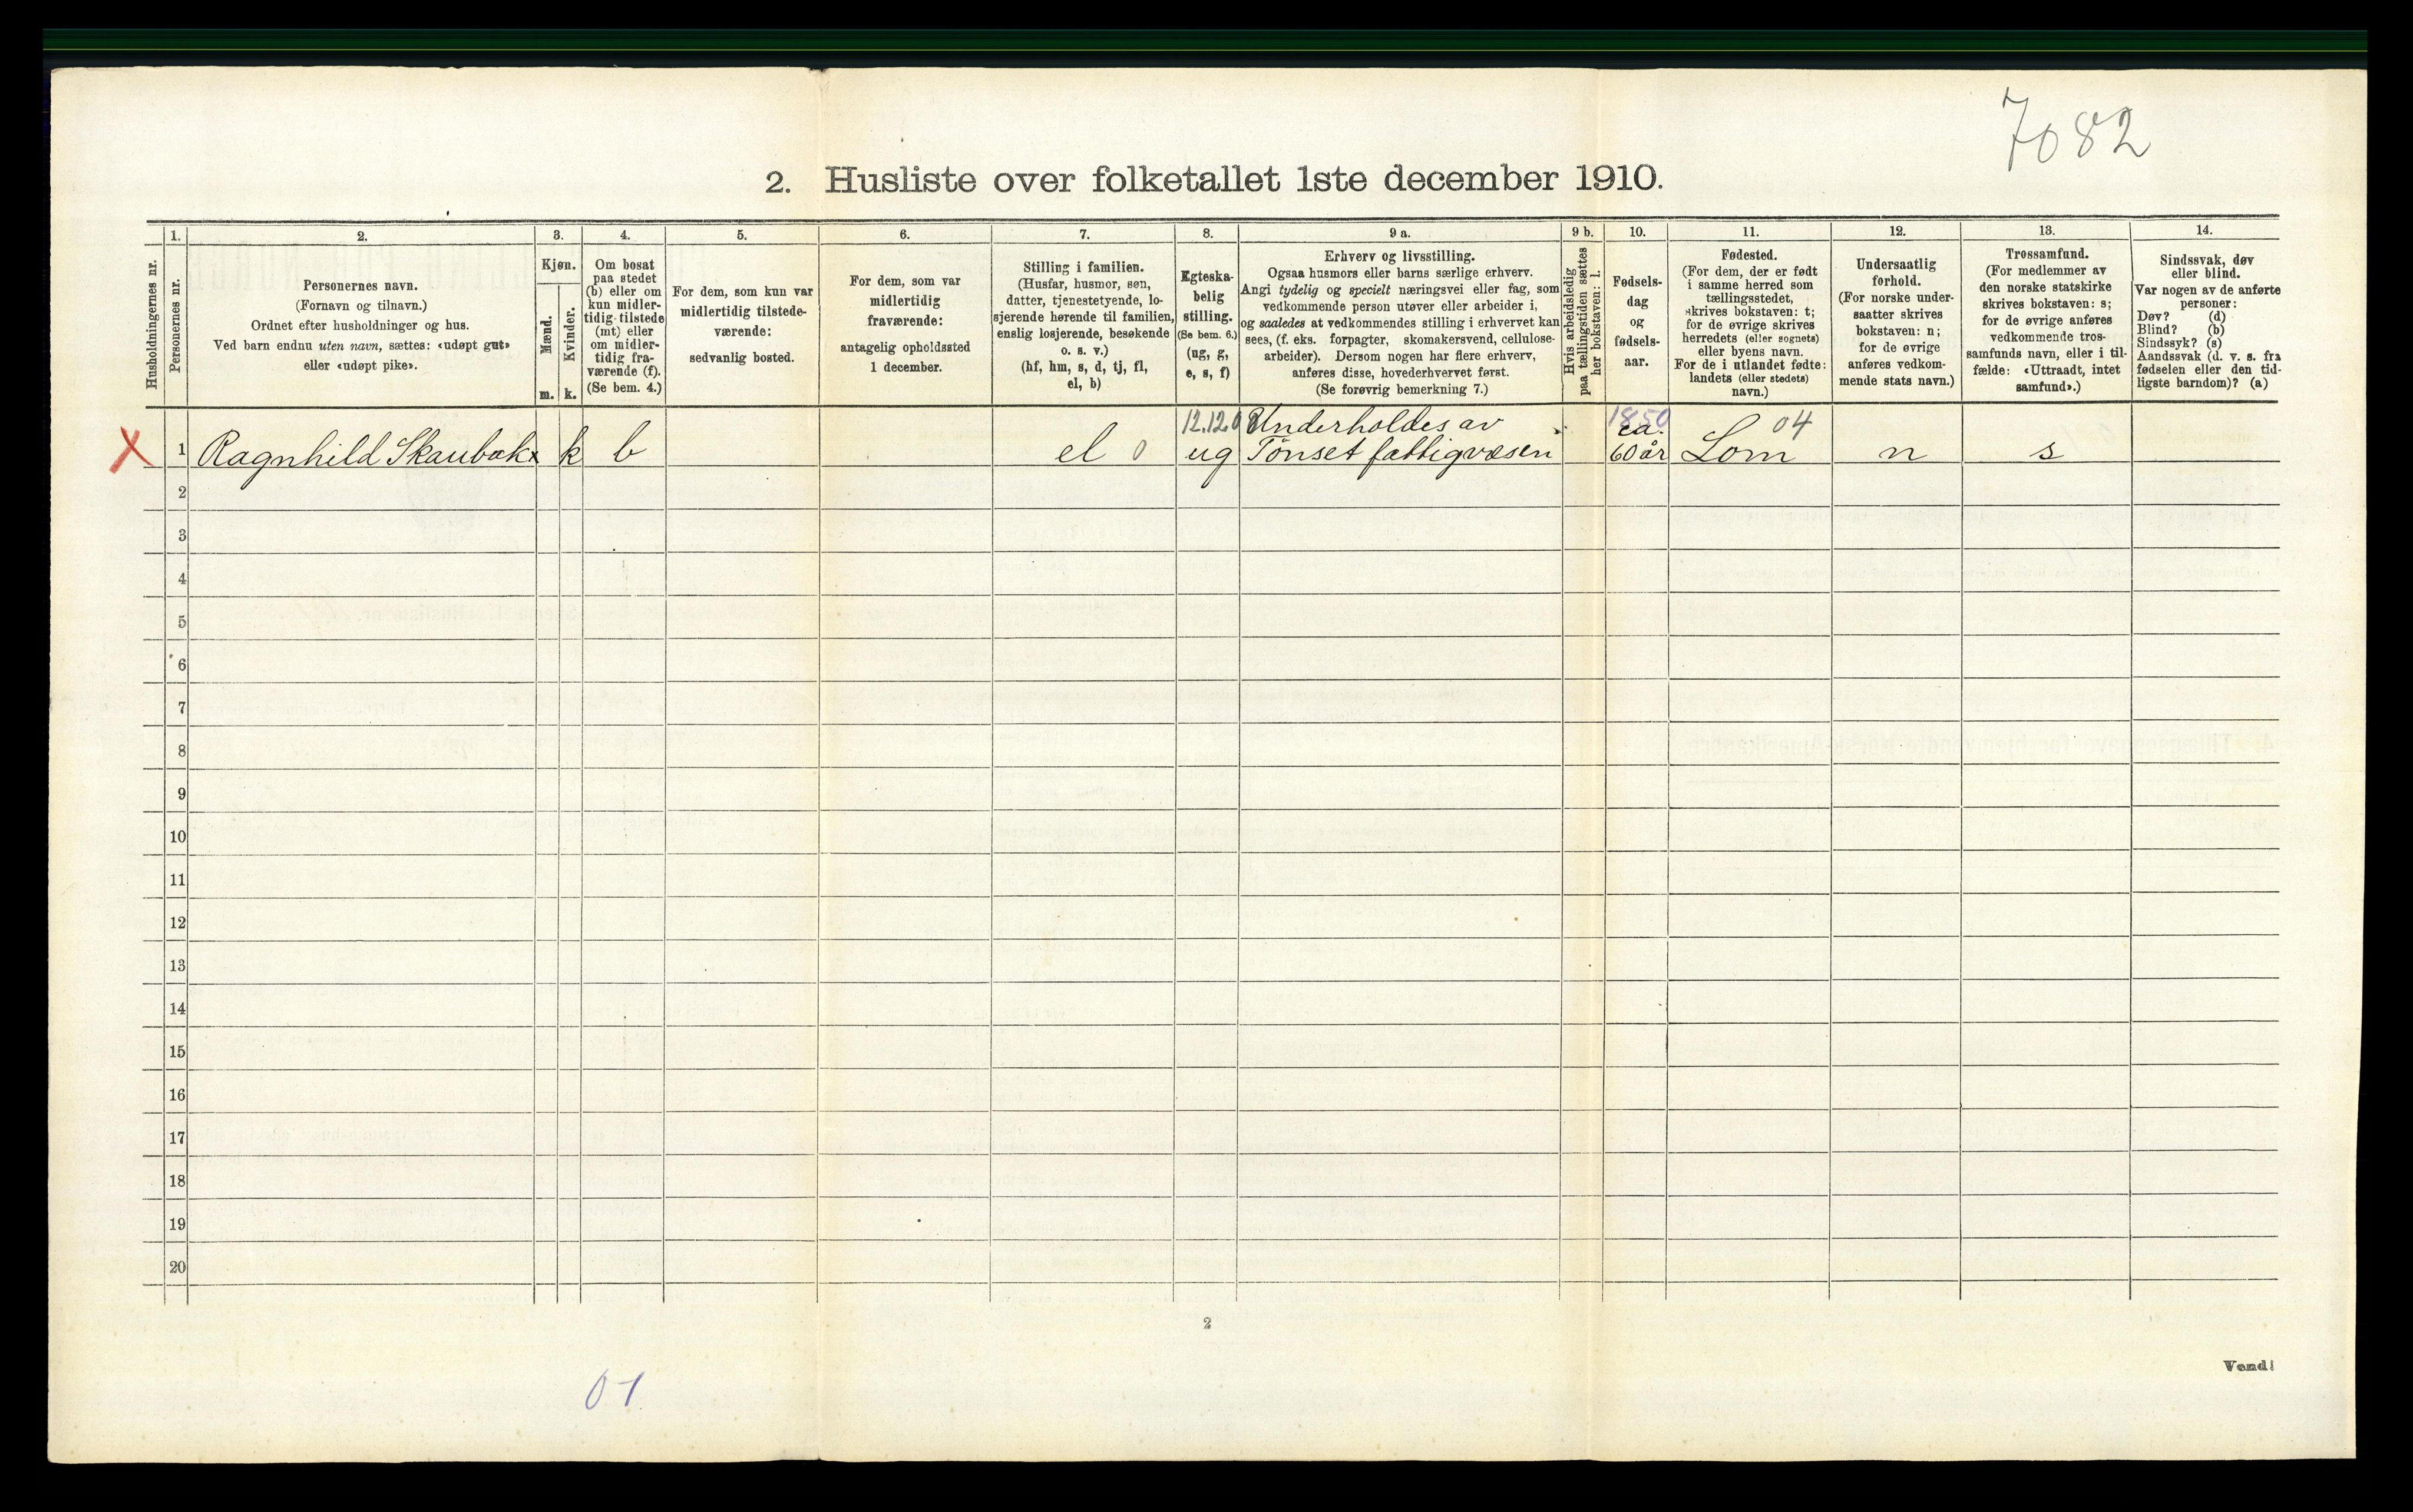 7082
2. Husliste over folketallet 1ste december 1910.
1. 2. 3. 4. 5. 6. 7. 8. 9 a. 9 b. 10. 11. 12. 13. 14.
Husholdningernes nr.
Personernes nr.
Personernes navn.
(Fornavn og tilnavn.)
Ordnet efter husholdninger og hus.
Ved barn endnu uten navn, sættes: «udøpt gut»
eller «udøpt pike».
Kjøn.
Mænd.
Kvinder.
m. k.
Om bosat
paa stedet
(b) eller om
kun midler-
tidig tilstede
(mt) eller
om midler-
tidig fra-
værende (f).
(Se bem. 4.)
For dem, som kun var
midlertidig tilstede-
værende:
sedvanlig bosted.
For dem, som var
midlertidig
fraværende:
antagelig opholdssted
1 december.
Stilling i familien.
(Husfar, husmor, søn,
datter, tjenestetyende, lo-
sjerende hørende til familien,
enslig losjerende, besøkende
o. s. v.)
(hf, hm, s, d, tj, fl,
el, b)
Egteska-
belig
stilling.
(Se bem. 6.)
(ug, g,
e, s, f)
Erhverv og livsstilling.
Ogsaa husmors eller barns særlige erhverv.
Angi tydelig og specielt næringsvei eller fag, som
vedkommende person utøver eller arbeider i,
og saaledes at vedkommendes stilling i erhvervet kan
sees, (f. eks. forpagter, skomakersvend, cellulose-
arbeider). Dersom nogen har flere erhverv,
anføres disse, hovederhvervet først.
(Se forøvrig bemerkning 7.)
Hvis arbeidsledig
paa tællingstiden sættes
her bokstaven: l.
Fødsels-
dag
og
fødsels-
aar.
Fødested.
(For dem, der er født
i samme herred som
tællingsstedet,
skrives bokstaven: t;
for de øvrige skrives
herredets (eller sognets)
eller byens navn.
For de i utlandet fødte:
landets (eller stedets)
navn.)
Undersaatlig
forhold.
(For norske under-
saatter skrives
bokstaven: n;
for de øvrige
anføres vedkom-
mende stats navn.)
Trossamfund.
(For medlemmer av
den norske statskirke
skrives bokstaven: s;
for de øvrige anføres
vedkommende tros-
samfunds navn, eller i til-
fælde: «Uttraadt, intet
samfund».)
Sindssvak, døv
eller blind.
Var nogen av de anførte
personer:
Døv? (d)
Blind? (b)
Sindssyk? (s)
Aandssvak (d. v. s. fra
fødselen eller den tid-
ligste barndom)? (a)
12.12.0 Underholdes av 1850 ca. 04
X 1 Ragnhild Skaubak x k b el 0 ug Tönset fattigvæsen 60 år Lom n s
2
3
4
5
6
7
8
9
10
11
12
13
14
15
16
17
18
19
20
2
Vend!
01